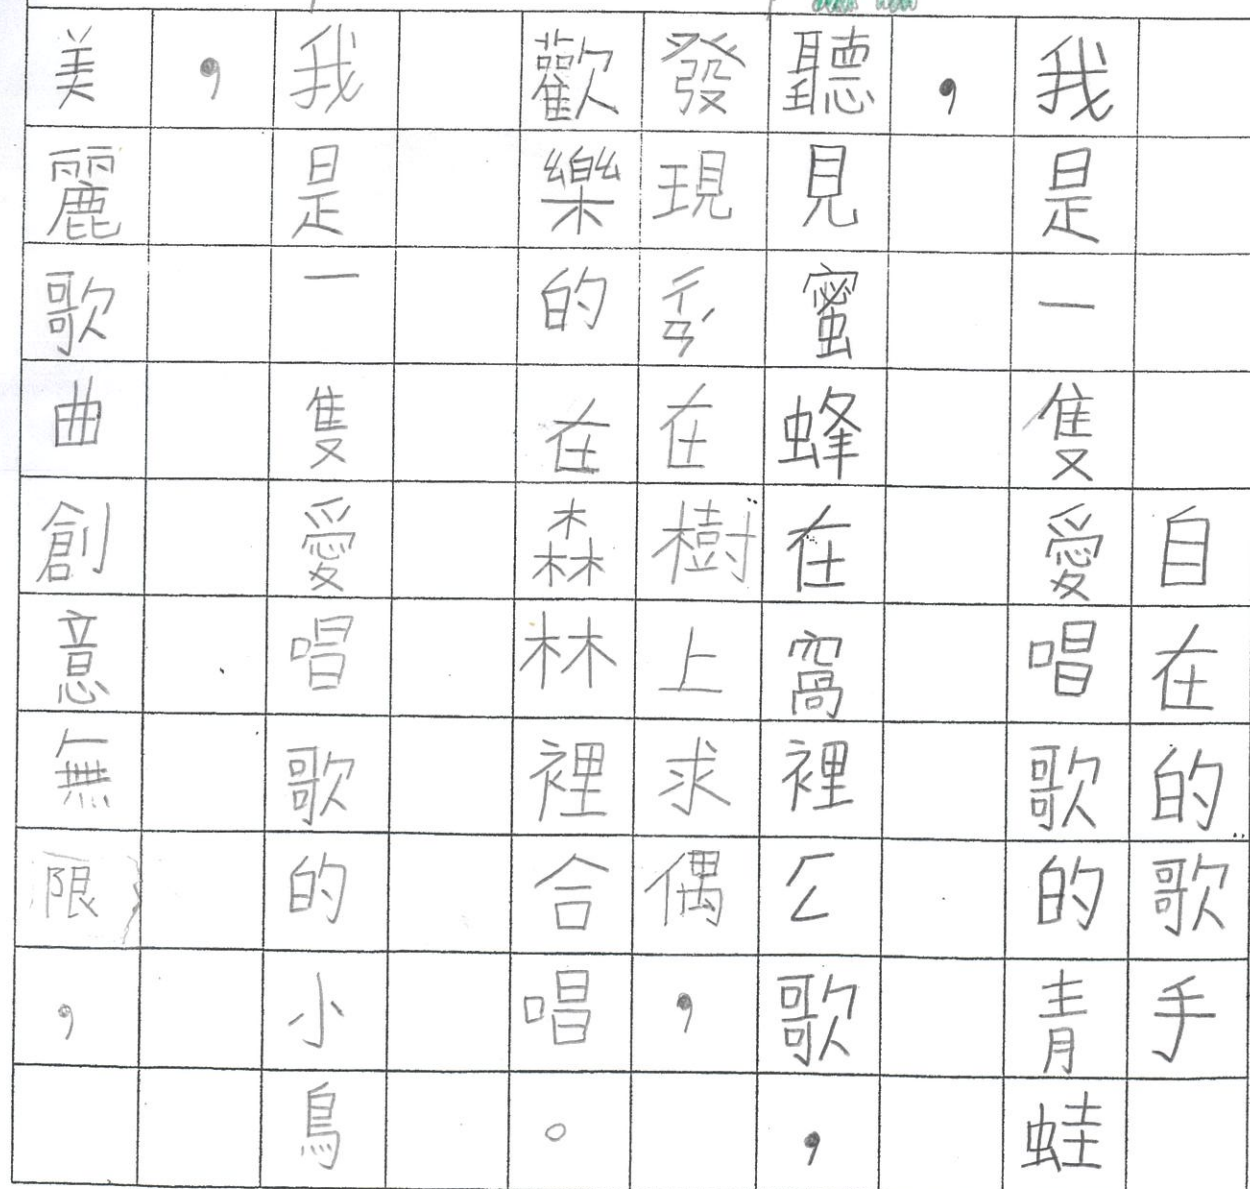 自在的歌手
我是一隻愛唱歌的青蛙
，
聽見蜜蜂在窩裡ㄏㄥ歌，
發現ㄔㄢˊ在樹上求偶，
歡樂的在森林裡合唱。
我是一隻愛唱歌的小鳥
，
美麗歌曲創意無限，